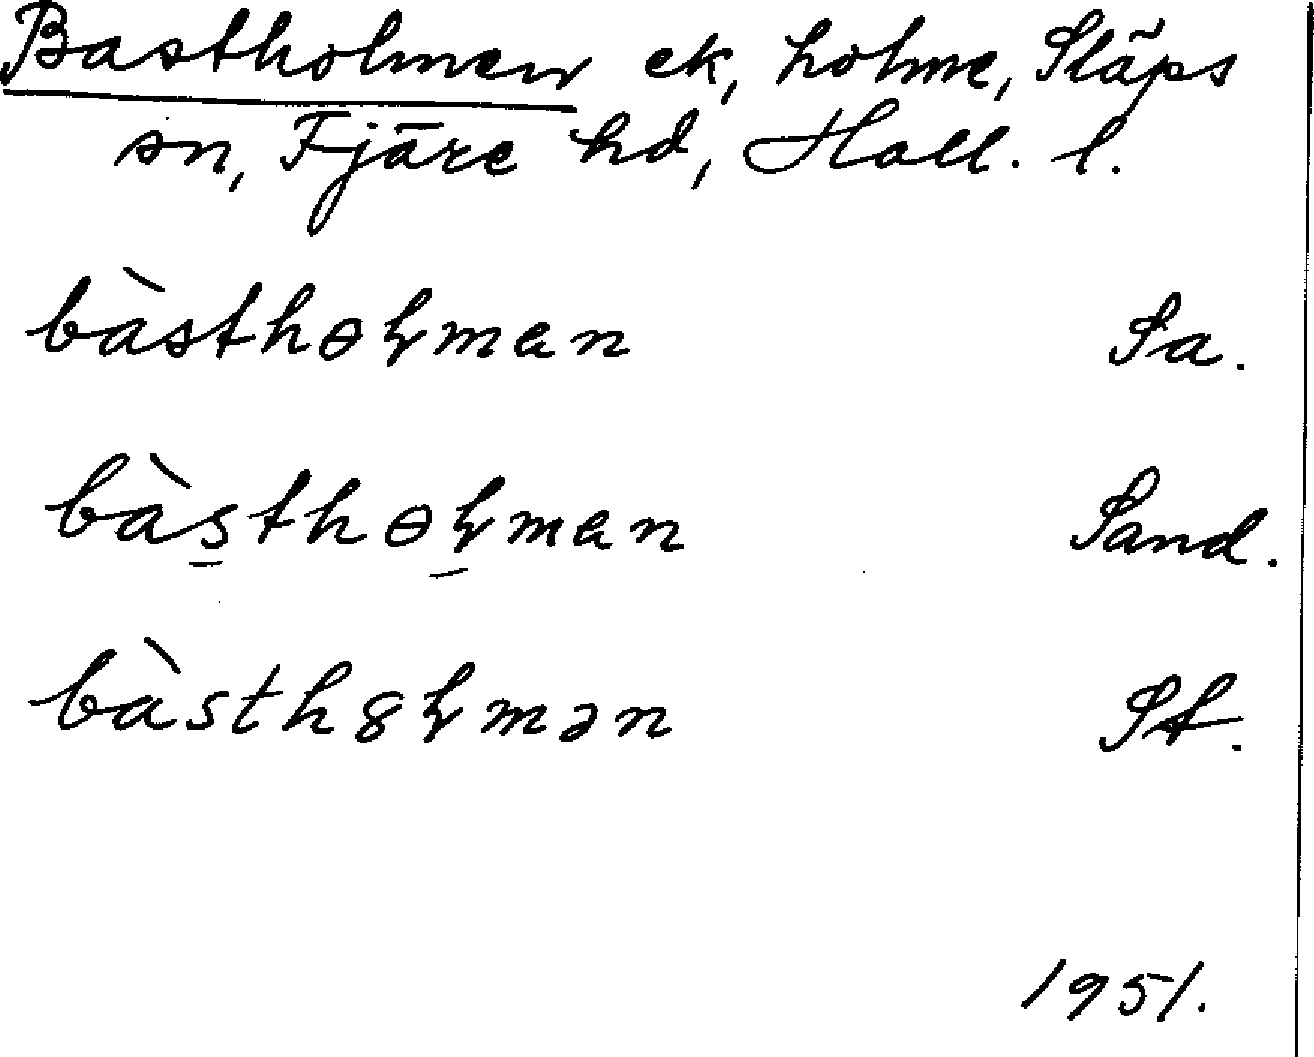 Bastholmen ek, holme, Släps
sn, Fjäre hd, Hall. l.
bàsthɵꞎman Sa.
bàs̱thɵꞎ̱man Sand.
bàsth8ꞎmən St.
1951.